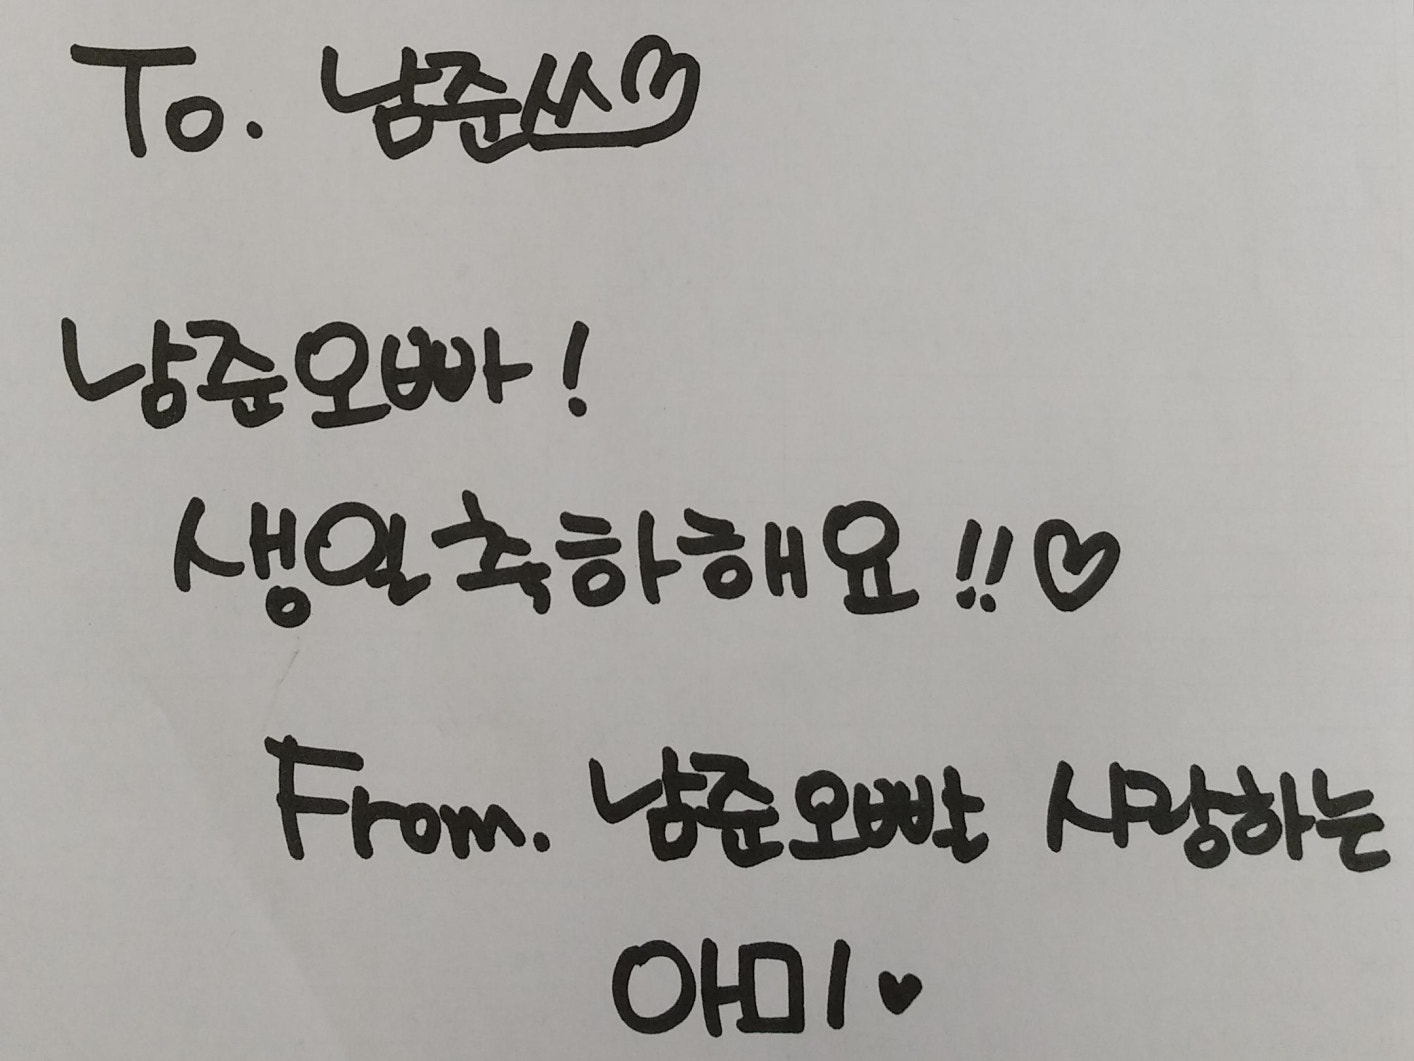 To. 남준씨♡
남준오빠!
생일축하해요!!♡
From. 남준오빨 사랑하는
아미♥